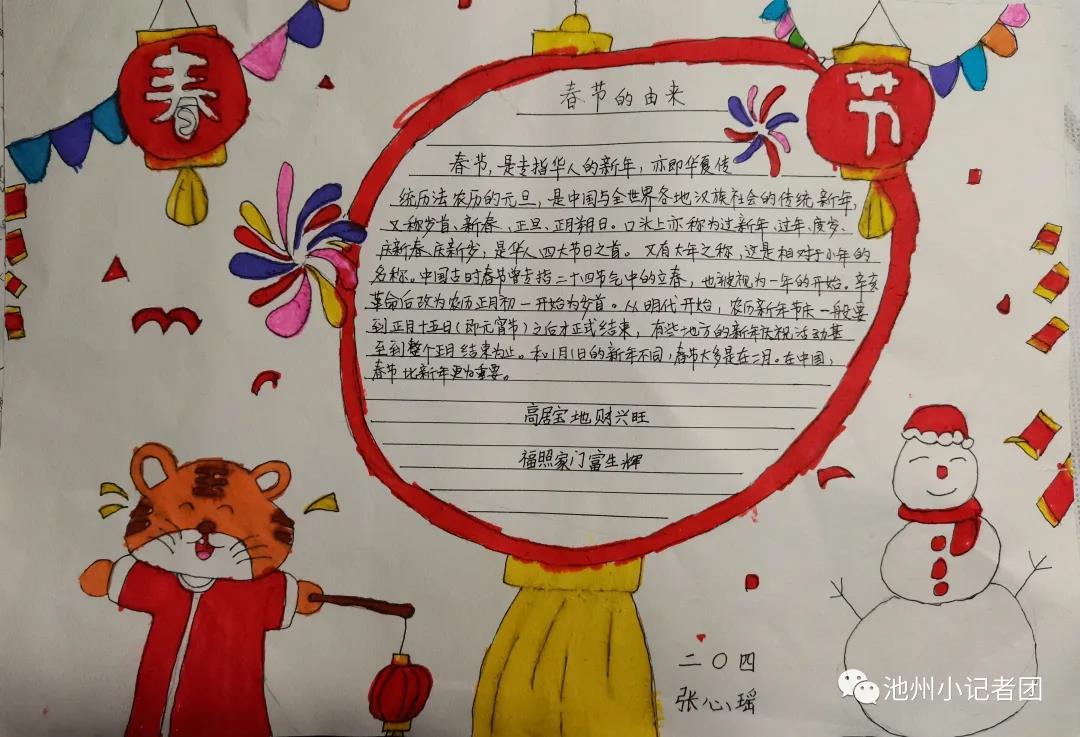 春
节
春节的由来
春节,是专指华人的新年,亦即华夏传
统历法农历的元旦,是中国与全世界各地汉族社会的传统新年,
又称岁首、新春、正旦、正月朔日。口头上亦称为过新年、过年、度岁、
庆新春、庆新岁,是华人四大节日之首。又有大年之称,这是相对于小年的
名称。中国古时春节曾专指二十四节气中的立春,也被视为一年的开始。辛亥
革命后改为农历正月初一开始为岁首。从明代开始,农历新年节庆一般要
到正月十五日(即元宵节)之后才正式结束,有些地方的新年庆祝活动甚
至到整个正月结束为止。和1月1日的新年不同,春节大多是在二月。在中国,
春节比新年更为重要。
高居宝地财兴旺
福照家门富生辉
二〇四
张心瑶
池州小记者团